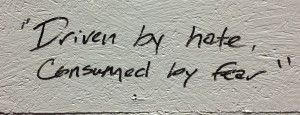 "Driven by hate,
Consumed by fear"